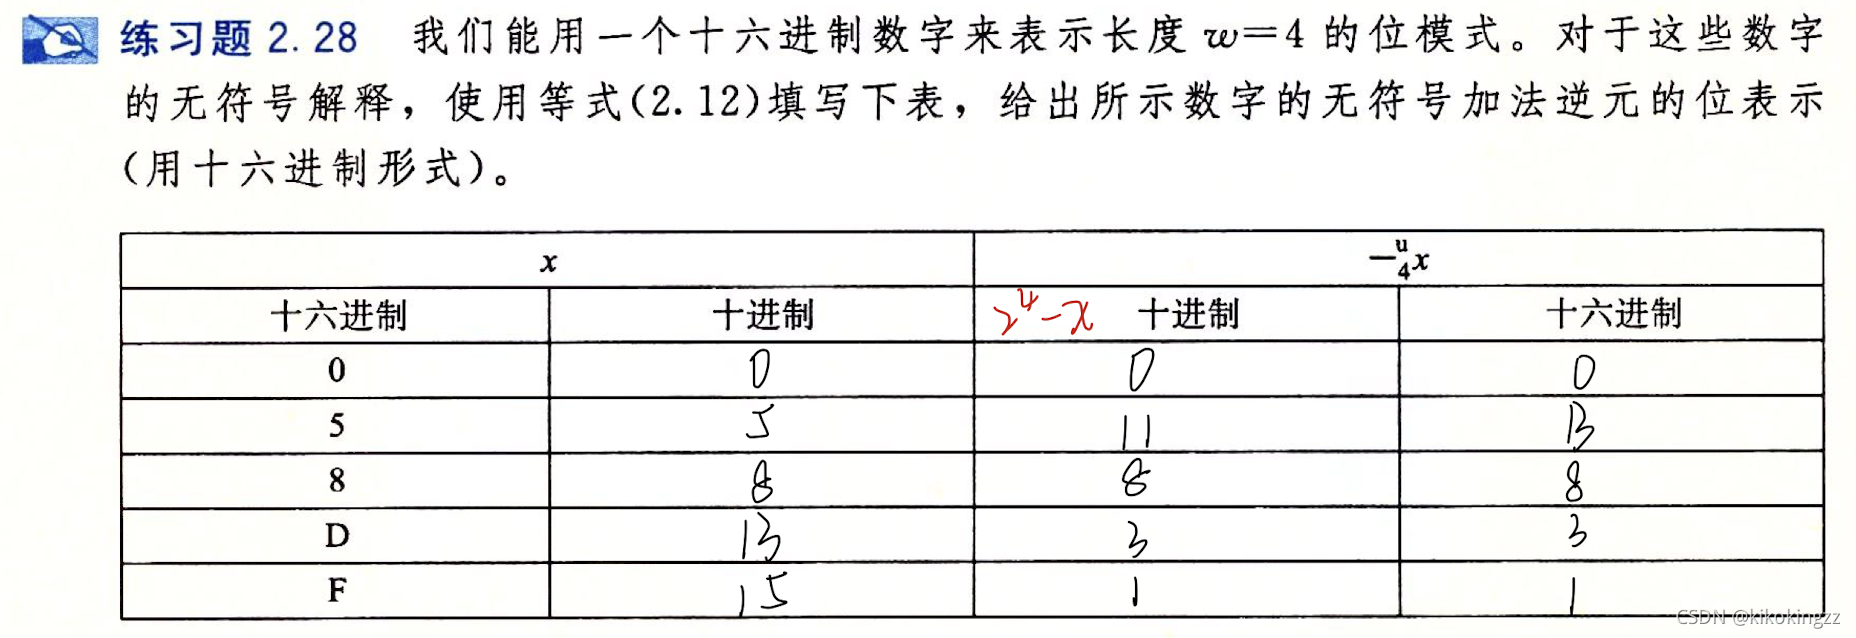 练习题 2.28 我们能用一个十六进制数字来表示长度 w=4 的位模式。对于这些数字
的无符号解释，使用等式(2.12)填写下表，给出所示数字的无符号加法逆元的位表示
(用十六进制形式)。
x -ᵤ₄x
十六进制 十进制 2⁴-x 十进制 十六进制
0 0 0 0
5 5 11 B
8 8 8 8
D 13 3 3
F 15 1 1
CSDN @kikokingzz